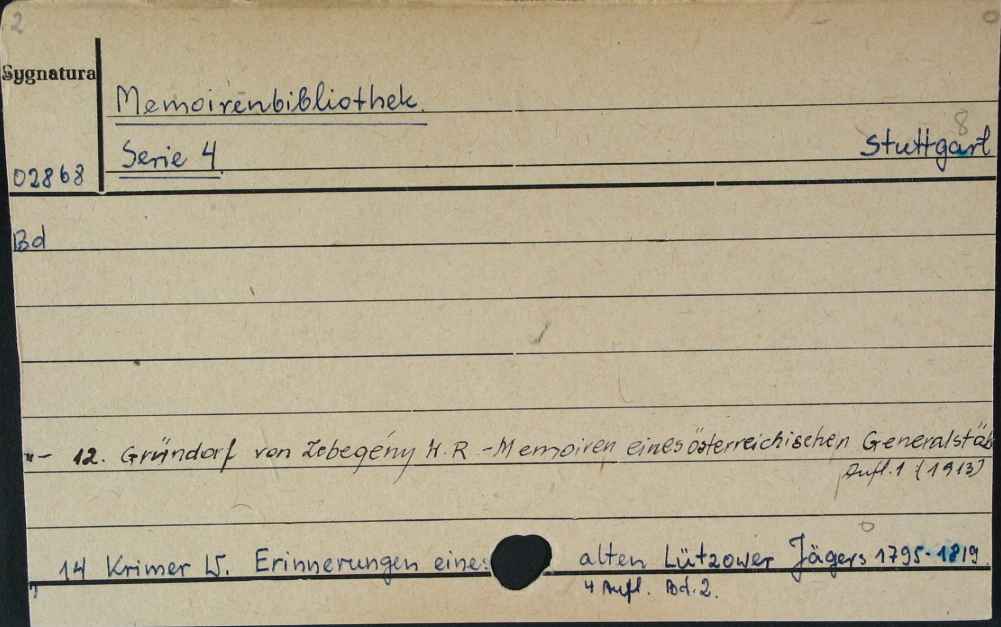 2
Sygnatura
Memoirenbibliothek.
8
Serie 4
Stuttgart
02868
Bd
"- 12. Gründorf von Zebegény W.R. - Memoiren eines österreichischen Generalstäb
Aufl. 1 (1913)
14 Krimer W. Erinnerungen eines alten Lützower Jägers 1795-1819.
4 Aufl. Bd. 2.